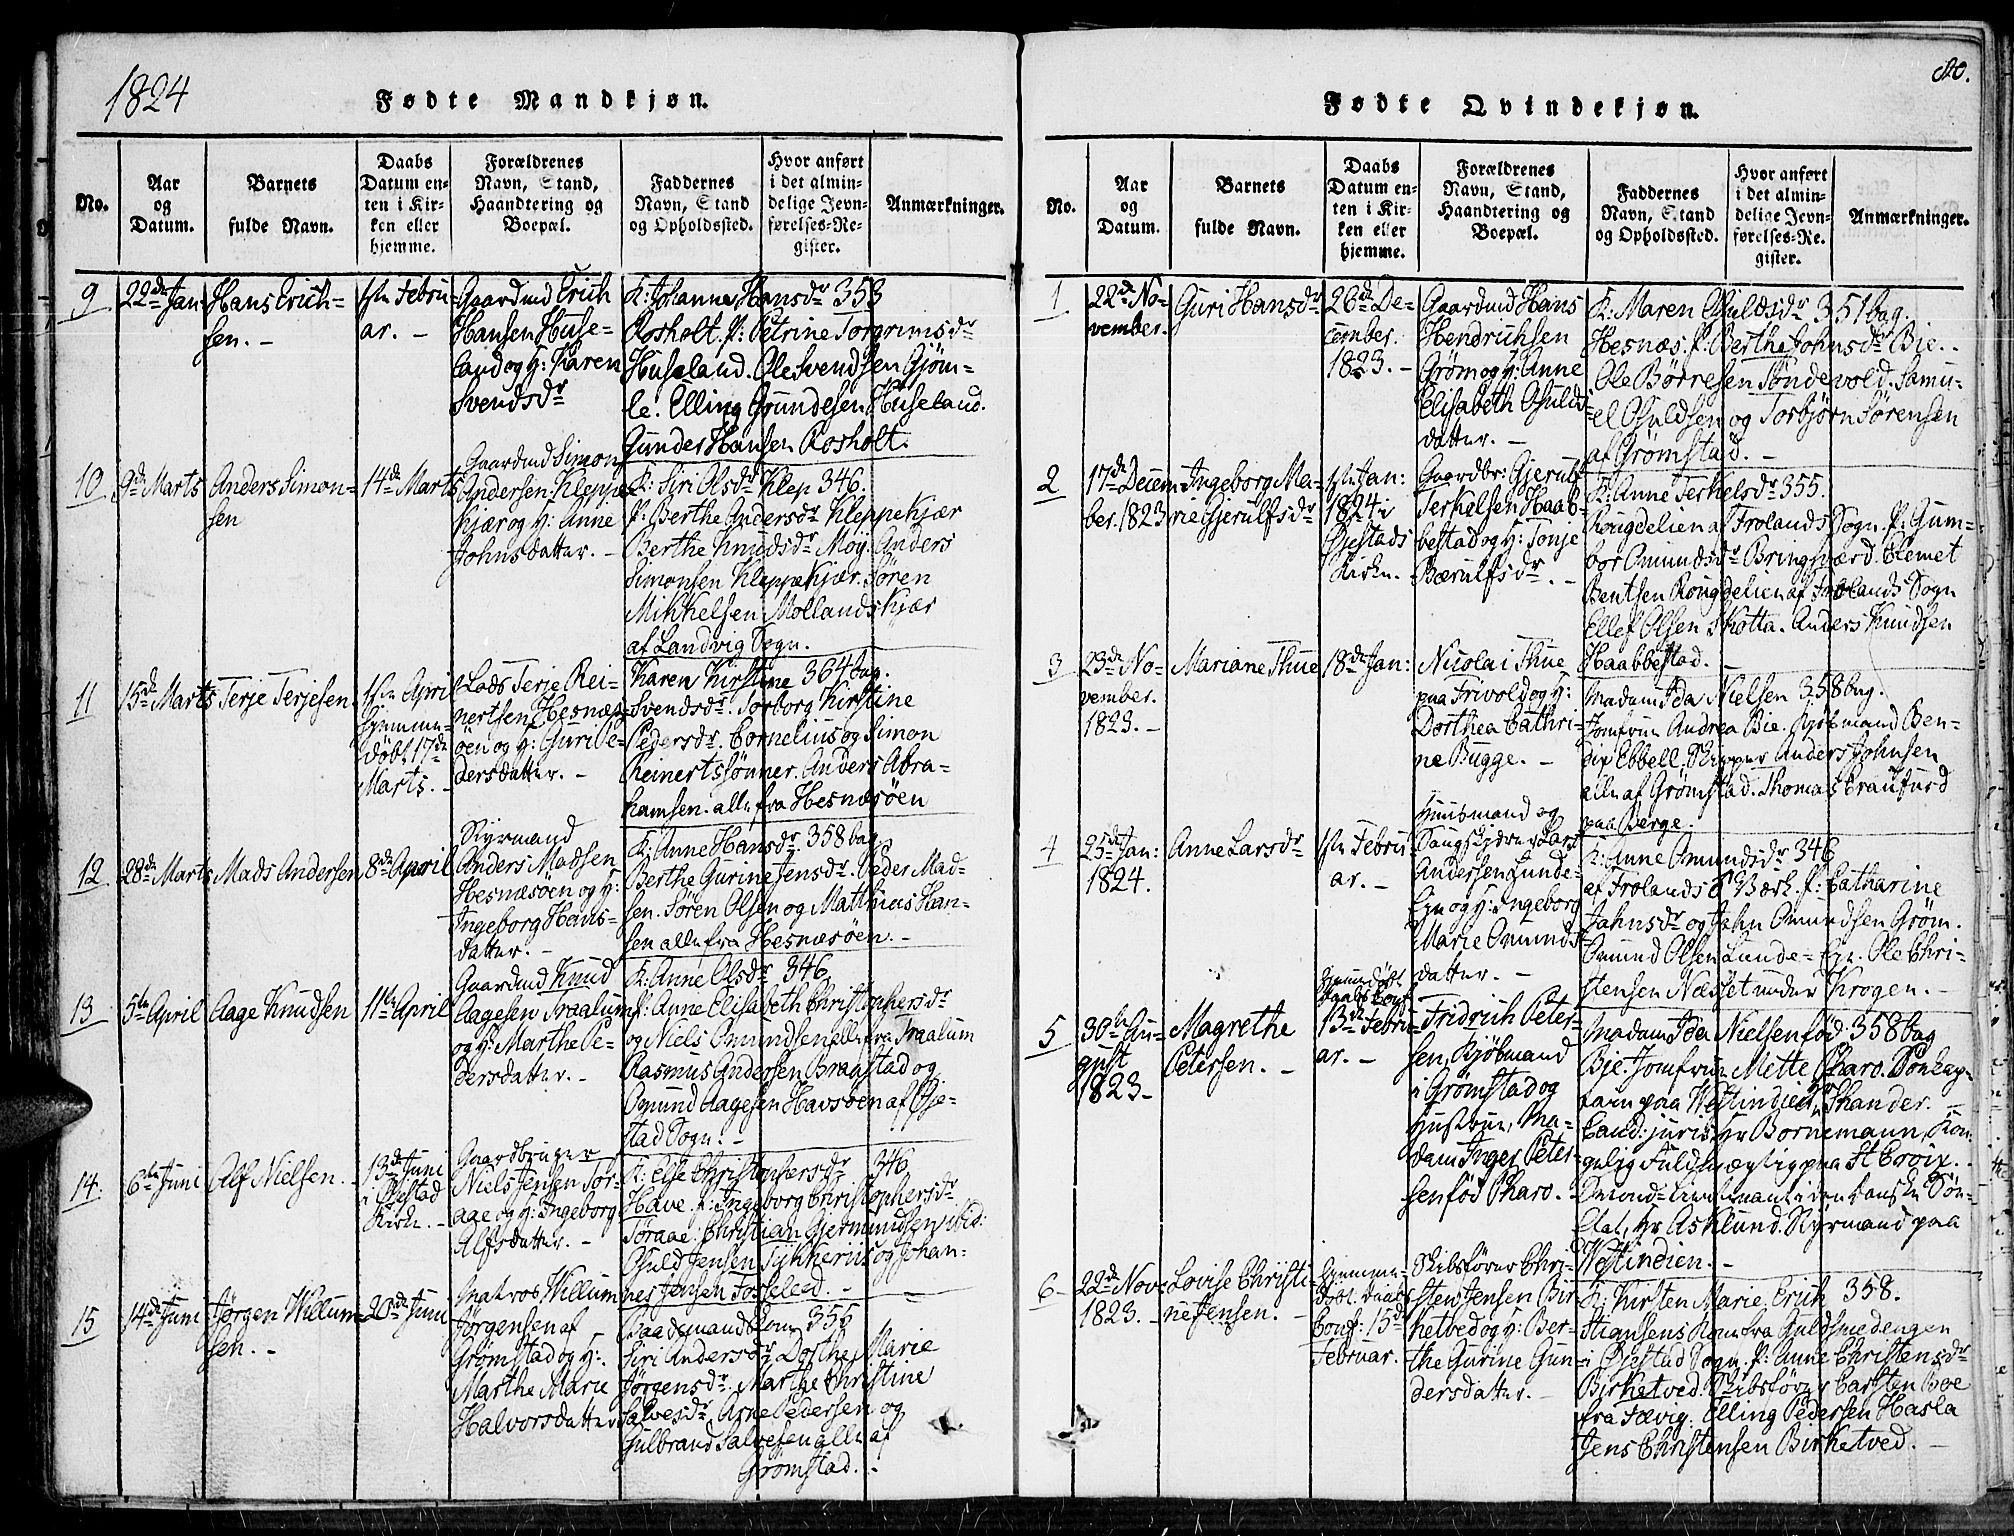 1824
Fødte Mandkjøn.
No.
Aar
og
Datum.
Barnets
fulde Navn.
Daabs
Datum en-
ten i Kir-
ken eller
hjemme.
Forældrenes
Navn, Stand,
Haandtering og
Boepæl.
Faddernes
Navn, Stand
og Opholdssted.
Hvor anført
i det almin-
delige Jevn-
førelses-Re-
gister.
Anmærkninger.
9
22de Jan:
Hans Erich-
sen. -
1ste Febru-
ar. -
Gaardmd Erich
Hansen Huse-
land og H: Karen
Svendsdr
K: Johanne Hansdr 353
Rosholt. P: Petrine Torgrimsdr
Huseland. Ole Svendsen Gjøm-
le. Elling Gundesen Huseland.
Gunder Hansen Rosholt.
10
9de Marts
Anders Simon-
sen
14de Marts
Gaardmd Simon
Andersen Kleppe-
kjær og H: Anne
Johnsdatter. -
K: Siri Olsdr Klep 346.
P: Berthe Andersdr Kleppekjær
Berthe Knudsdr Moy. Anders
Simonsen Kleppekjær. Søren
Mikkelsen Mollandskjær
af Landvig Sogn.
11
15de Marts
Terje Terjesen
1ste April
hjemme-
døbt 17de
Marts. -
Lods Terje Rei-
nertsen Hesnæs-
øen og H: Guri Pe-
dersdatter. -
Karen Kirstine 364 bag.
Svendsdr. Torborg Kirstine
Pedersdr. Cornelius og Simon
Reinertssønner. Anders Abra-
hamsen. alle fra Hesnæsøen
12
28de Marts
Mads Andersen
8de April
Styrmand
Anders Madsen
Hesnæsøen og H:
Ingeborg Hans-
datter. -
K: Anne Hansdr. 358 bag
Berthe Gurine Jensdr. Peder Mad-
sen. Søren Olsen og Matthias Han-
sen alle fra Hesnæsøen. -
13
5te April
Aage Knudsen
11te April
Gaardmd Knud
Aagesen Traalum
og H: Marthe Pe-
dersdatter. -
K: Anne Olsdr 346
P: Anne Elisabeth Christophersdr
og Niels Omundsen alle fra Traalum
Rasmus Andersen Braastad og
Ogmund Aagesen Havsøen af Øje-
stad Sogn. -
14.
6te Juni
Alf Nielsen. -
13de Juni
i Øjestad
Kirke. -
Gaardbruger
Niels Jensen Tor-
aae og H: Ingeborg
Alfsdatter. -
K: Else Christophersdr 346
Have. P: Ingeborg Christophersdr
Toraae. Christian Gjermundsen ibid:
Osuld Jensen og Johan-
nes Jensen Fosseleed. -
15
14de Juni
Jørgen Willum-
sen. -
20de Juni
Matros Willum
Jørgensen af
Grømstad og H:
Marthe Marie
Halvorsdatter
Baadsmands Kone 355
Siri Andersdr. Dorthe Marie
Jørgensdr. Marthe Christine
Salvesdr. Arne Pedersen og
Gulbrand Salvesen alle af
Grømstad. -
80.
Fødte Qvindekjøn.
No.
Aar
og
Datum.
Barnets
fulde Navn.
Daabs
Datum en-
ten i Kir-
ken eller
hjemme.
Forældrenes
Navn, Stand,
Haandtering og
Boepæl.
Faddernes
Navn, Stand
og Opholdssted.
Hvor anført
i det almin-
delige Jevn-
førelses-Re-
gister.
Anmærkninger.
1
22de No-
vember.
Guri Hansdr
26de De-
cember.
1823. -
Gaardmd Hans
Hendrichsen
Grøm og H: Anne
Elisabeth Osulds-
datter. -
K: Maren Osuldsdr 351 bag.
Hesnæs. P: Berthe Johnsdr Bie. -
Ole Børresen Søndevold. Samu-
el Osuldsen og Torbjørn Sørensen
af Grømstad. -
2
17de Decem-
ber. 1823
Ingeborg Ma-
rie Gjerulfsdr
1ste Jan:
1824 i
Øjestads
Kirke. -
Gaardbr: Gjerulf
Terkelsen Haab-
bestad og H: Tonje
Bærulfsdr. -
K: Anne Terkelsdr 355.
Rougdelien af Frolands Sogn. P: Gum-
bor Omundsdr Bringsværd. Clemet
Bentsen Rougdelien af Frolands Sogn
Ellef Olsen Skotta. Anders Knudsen
Haabbestad. -
3
23de No-
vember.
1823. -
Mariane Thue
18de Jan:
Nicolai Thue
paa Frivold og H:
Dorthea Cathri-
ne Bugge. -
Madam Ida Nielsen 358 bag.
Jomfrue Andrea Bie. Kjøbmand Ben-
dix Ebbell. Skipper Anders Johnsen
alle af Grømstad. Thomas Craufurd
paa Berge.
4
25de Jan:
1824.
Anne Larsdr
1ste Febru-
ar. -
Huusmand og
Saugskjærer Lars
Andersen Lunde-
Egre og H: Ingeborg
Marie Omunds-
datter. -
K: Anne Omundsdr 346
af Frolands Værk. P: Catharine
Jahnsdr og Jahn Omundsen Grøm.
Omund Olsen Lunde-Egr. Ole Chri-
stensen Næsset under Krogen. -
5
30te Au-
gust
1823 -
Magrethe
Petersen. -
hjemmedøbt
Daabs Conf
13de Febru-
ar. -
Fridrich Peter-
sen, Kjøbmand
i Grømstad og
Hustrue, Ma-
dam Inger Peter-
sen fød Pharo. -
Madam Ida Nielsen fød 358 bag
Bie. Jomfrue Mette Pharo.
paa Westindien, -
Cand: juris Hr Bornemann, Kon-
gelig Fuldmægtig paa St Croix. -
Lieutenant i den danske Søe-
Etat, Hr Asklund. Styrmand paa
Westindien. -
6
22de Nov:
1823. -
Lovise Christi-
ne Jensen. -
hjemme-
døbt. Daabs
Conf: 15de
Februar. -
Skibsfører Chri-
sten Jensen Bir-
ketved og H: Ber-
the Gurine Gun-
dersdatter. -
K: Kirsten Marie Erich 358.
stiansens Kone fra Guldsmedengen
i Øjestad Sogn. P: Anne Christensdr
Birketved. Skibsfører Carsten Boe
fra Fævig. Elling Pedersen Hasla
Jens Christensen Birketved. -